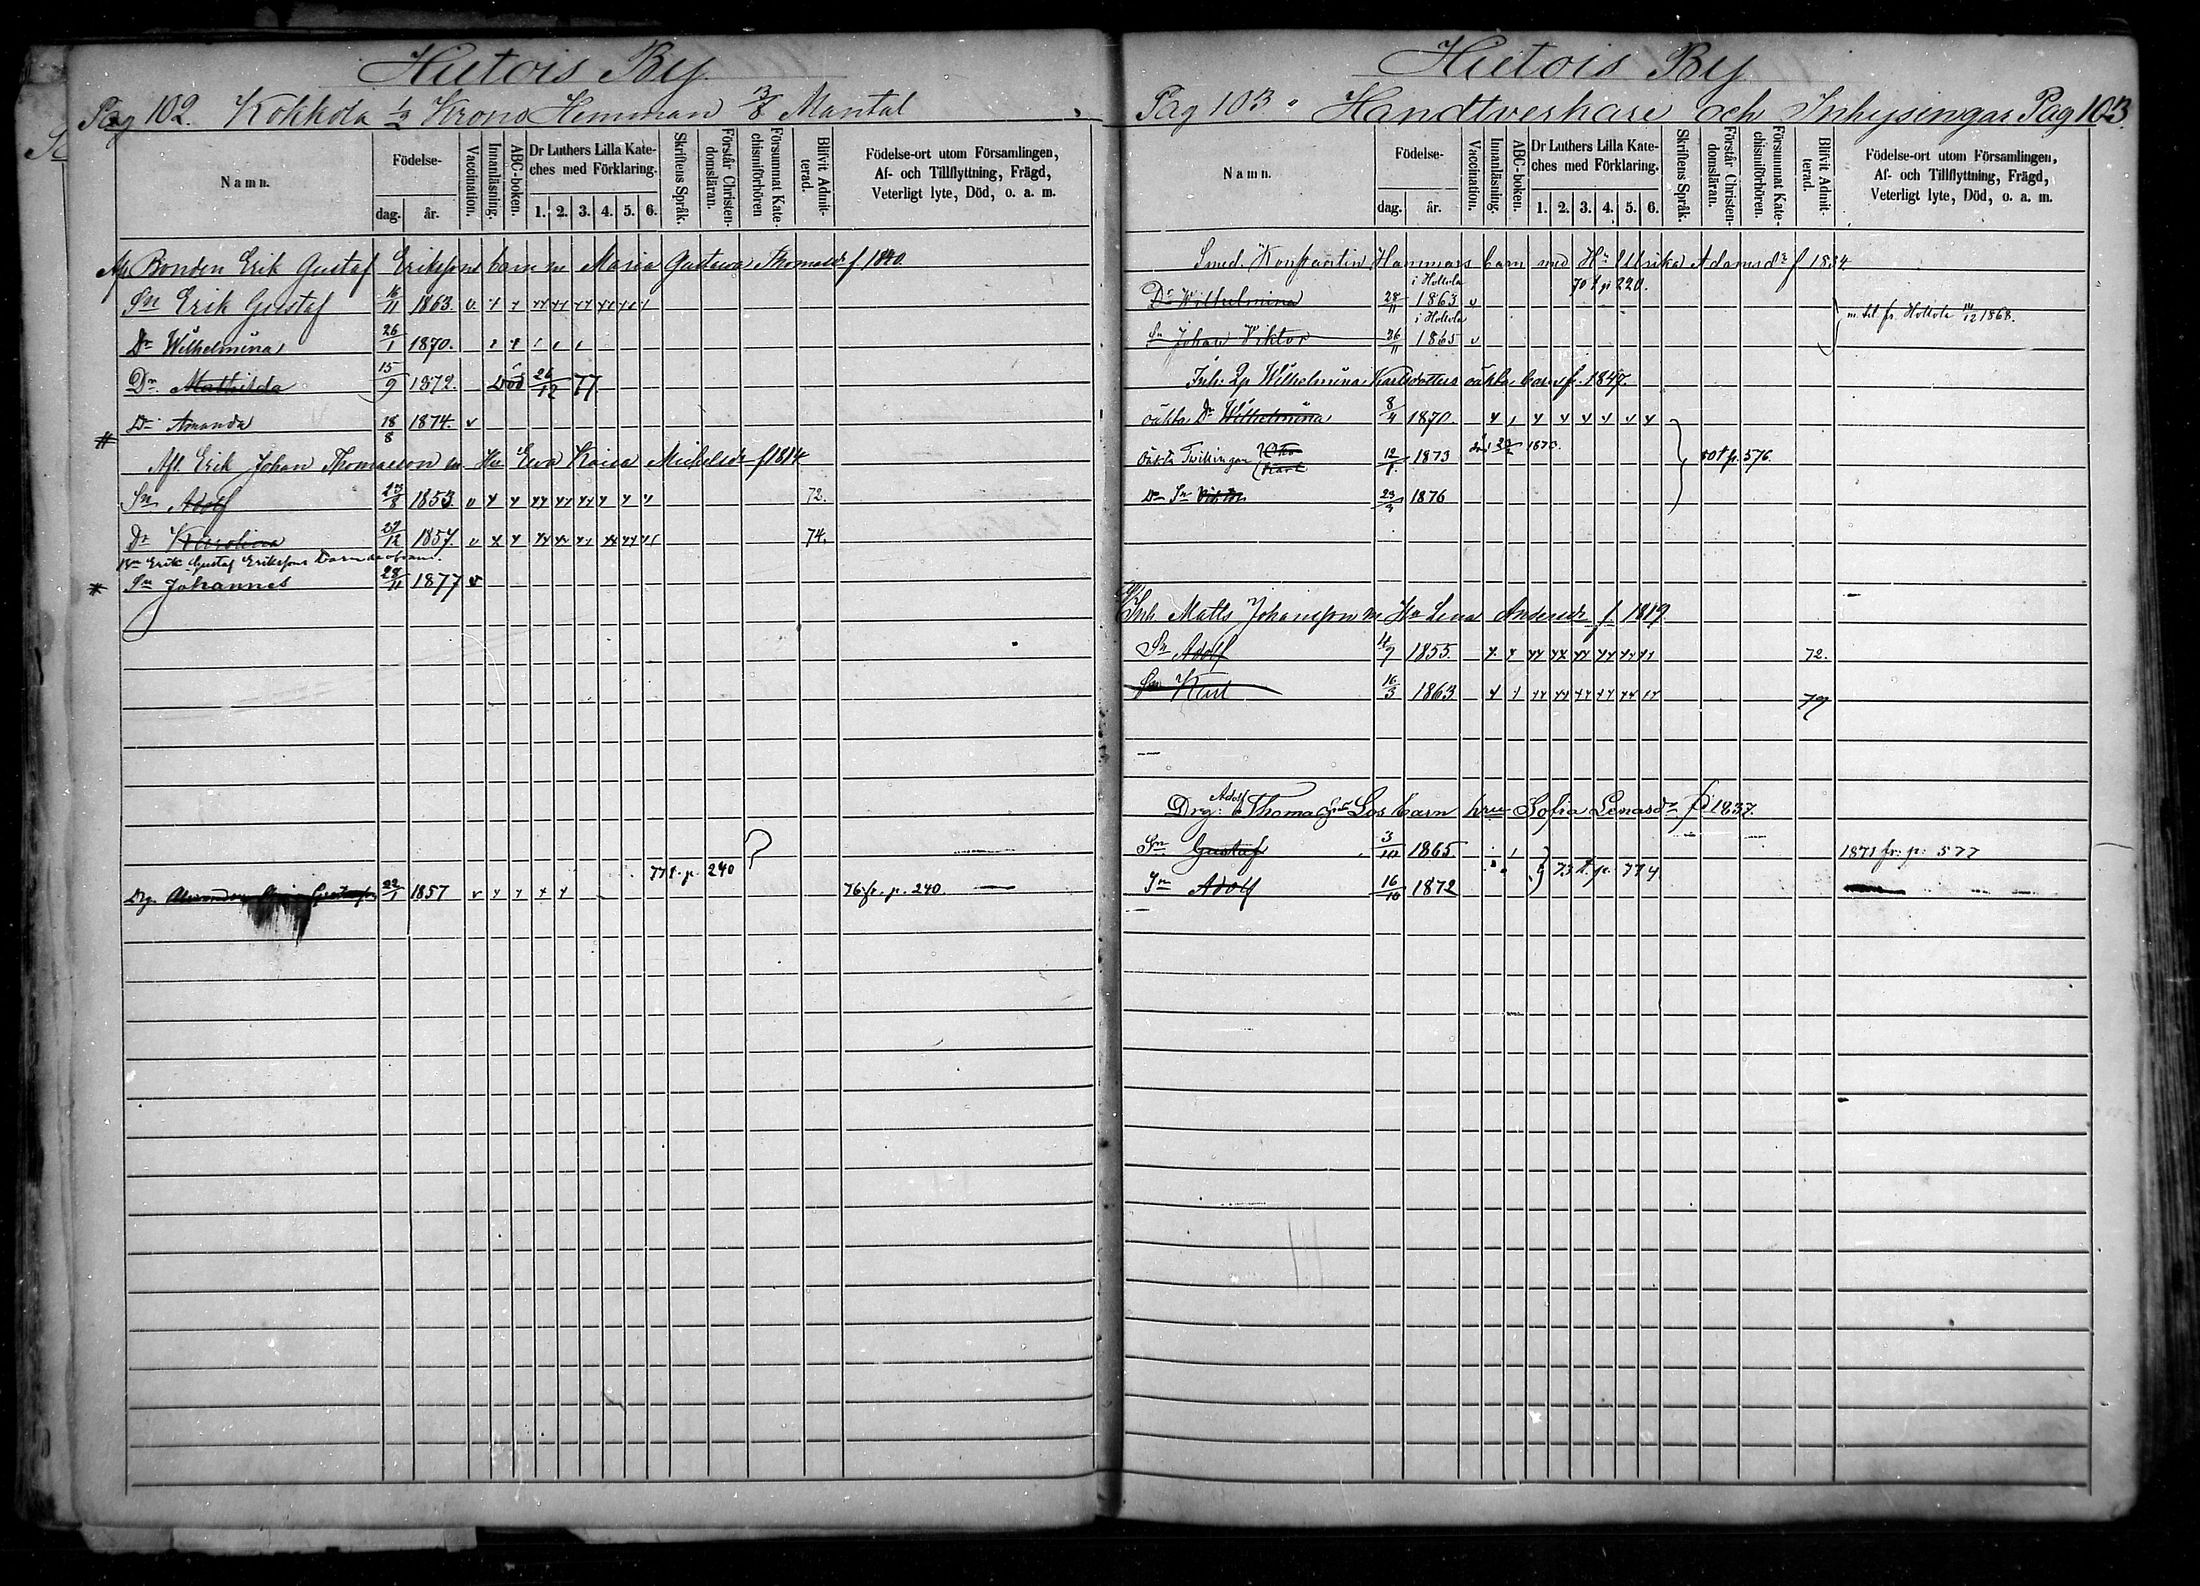 Hutois By
Pag 102. Kokkola 1/2 Krono Hemman 13/8 Mantal
Namn.
Födelse-
dag. år.
Vaccination.
Innanläsning.
ABC-boken.
Dr Luthers Lilla Kate-
ches med Förklaring.
1. 2. 3. 4. 5. 6.
Skriftens Språk.
Förstår Christen-
domsläran.
Försummat Kate-
chismiförhören
Blifvit Admit-
terad.
Födelse-ort utom Församlingen,
Af- och Tillflyttning, Frägd,
Veterligt lyte, Död, o. a. m.
Bonden Erik Gustaf Erikssons barn m Maria Gustava Thomasdr f 1840.
Sn Erik Gustaf 16/11 1863. v
Dr Wilhelmina 26/1 1870.
Dr Mathilda 15/9 1872. Död 26/12 77
Dr Amanda 18/8 1874. v
Afl. Erik Johan Thomasson m Hu Eva Kaisa Michelsdr f 1814
Sn Adolf 23/8 1853. v 72.
Dr Karolina 29/12 1857. v 74.
Bn Erik Gustaf Erikssons Barn
Sn Johannes 28/11 1877 v
77 t. p. 240
Drg. 22/1 1857 v 76 fr. p. 240.
Hutois By
Pag 103. Handtverkare och Inhysingar Pag 103.
Namn.
Födelse-
dag. år.
Vaccination.
Innanläsning.
ABC-boken.
Dr Luthers Lilla Kate-
ches med Förklaring.
1. 2. 3. 4. 5. 6.
Skriftens Språk.
Förstår Christen-
domsläran.
Försummat Kate-
chismiförhören.
Blifvit Admit-
terad.
Födelse-ort utom Församlingen,
Af- och Tillflyttning, Frägd,
Veterligt lyte, Död, o. a. m.
Smed. Konstantin Hammars barn med Hu Ulrika Adamsdr f 1834
i Hollola 70 t p 220.
Dr Wilhelmina 28/11 1863 v
i Hollola m. bet. fr. Hollola 14/12 1868.
Sn Johan Viktor 26/11 1865 v
Inh: Qp Wilhelmina Karlsdotters oäkta barn f. 1847.
oäkta Dr Wilhelmina 8/4 1870.
oäkta Twillingar Otto Karl 12/8 1873 1873. 80 t p. 576.
Dn Sn Viktor 23/3 1876
Inh Matts Johansson m Hu Lena Andersdr f 1819.
Sn Adolf 4/7 1855. 72.
Sn Karl 16/3 1863 79
Drg: Adolf Thomasson Los barn hru Sofia Lenasdr f 1837.
Sn Gustaf 3/10 1865. 1871 fr. p. 577
73 t. p. 774
Sn Adolf 16/10 1872